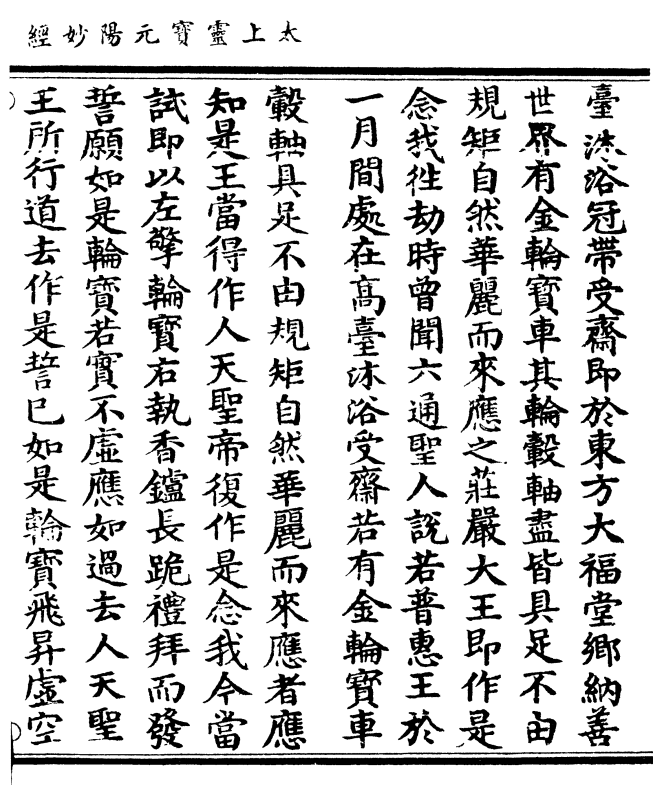 太上靈寶元陽妙經
臺沐浴冠帶受齋即於東方大福堂鄉納善
世界有金輪寶車其輪轂軸盡皆具足不由
規矩自然華麗而來應之莊嚴大王即作是
念我徃劫時曾聞六通聖人說若普惠王於
一月間處在高臺沐浴受齋若有金輪寶車
轂軸具足不由規矩自然華麗而來應者應
知是王當得作人天聖帝復作是念我今當
試即以左擎輪寶右執香鑪長跪禮拜而發
誓願如是輪寶若實不虛應如過去人天聖
王所行道去作是誓已如是輪寶飛昇虛空